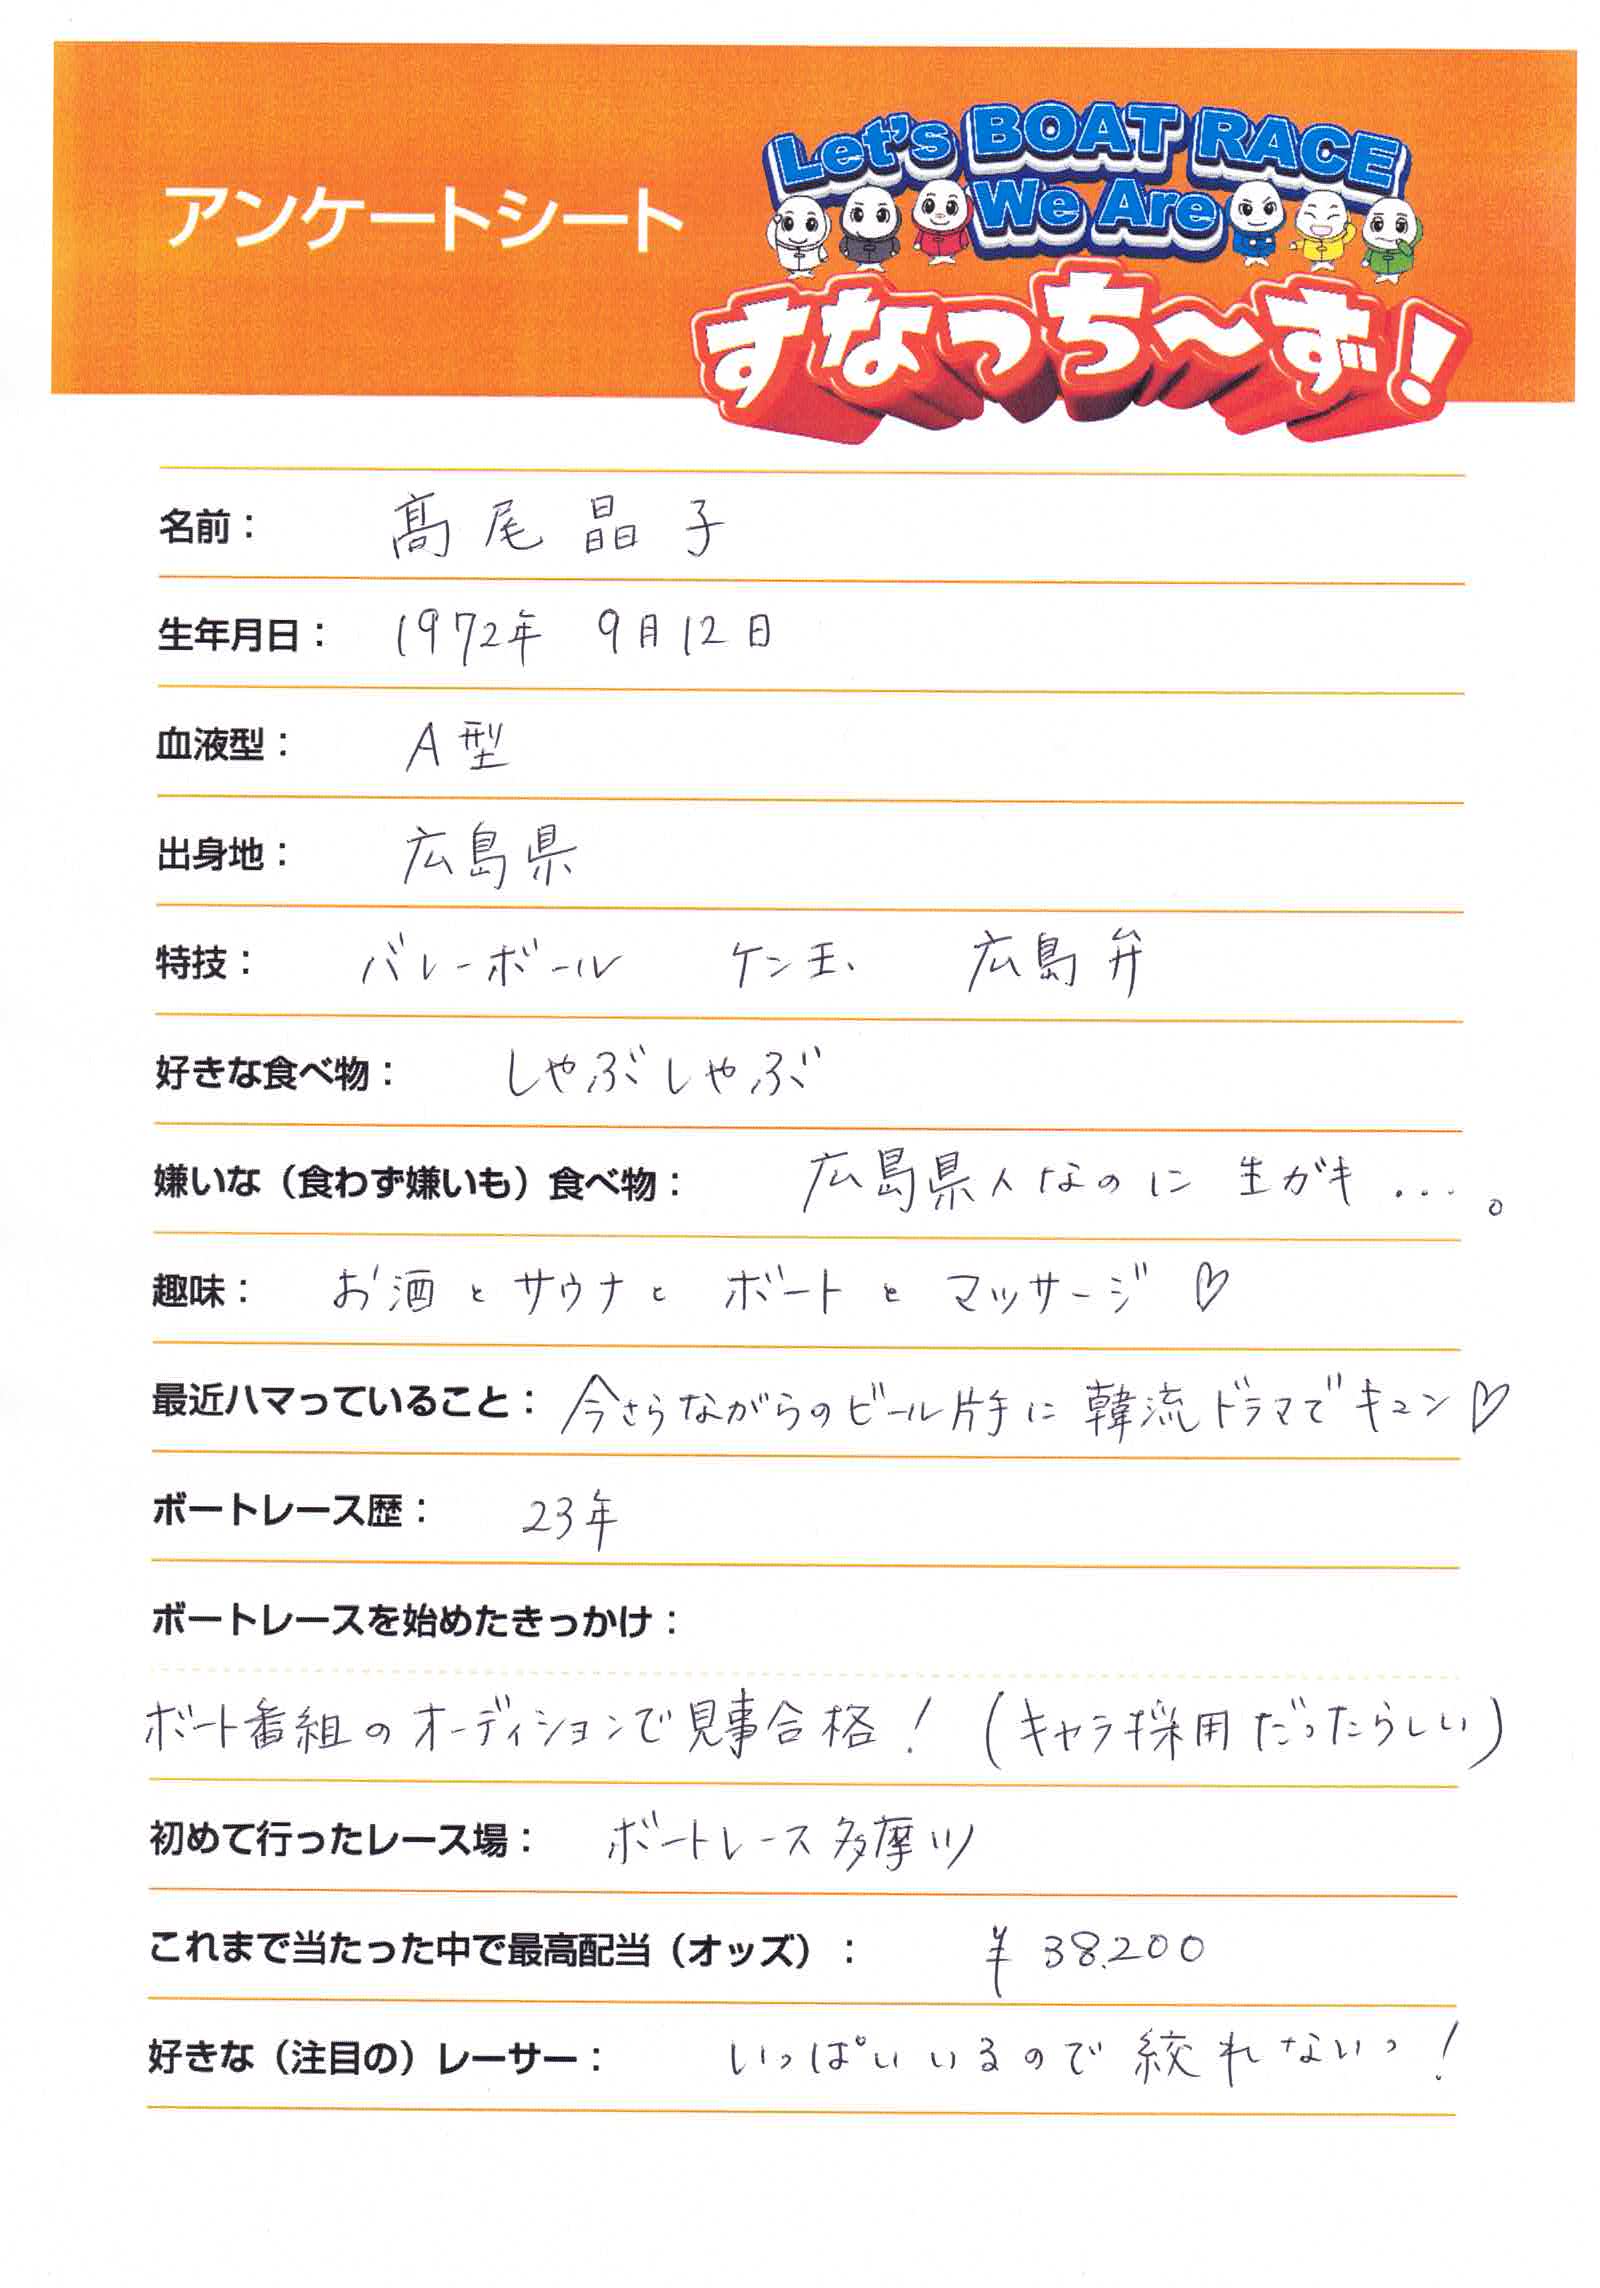 Let's BOAT RACE
アンケートシート
We Are
すなっち〜ず！
名前： 髙尾晶子
生年月日： 1972年 9月12日
血液型： A型
出身地： 広島県
特技： バレーボール ケン玉、 広島弁
好きな食べ物： しゃぶしゃぶ
嫌いな（食わず嫌いも）食べ物： 広島県人なのに 生ガキ ....。
趣味： お酒とサウナと ボートと マッサージ♡
最近ハマっていること： 今さらながらのビール片手に韓流ドラマでキュン♡
ボートレース歴： 23年
ボートレースを始めたきっかけ：
ボート番組のオーディションで見事合格！（キャラ採用だったらしい）
初めて行ったレース場： ボートレース多摩川
これまで当たった中で最高配当（オッズ）： ¥38,200
好きな（注目の）レーサー： いっぱいいるので絞れないっ！